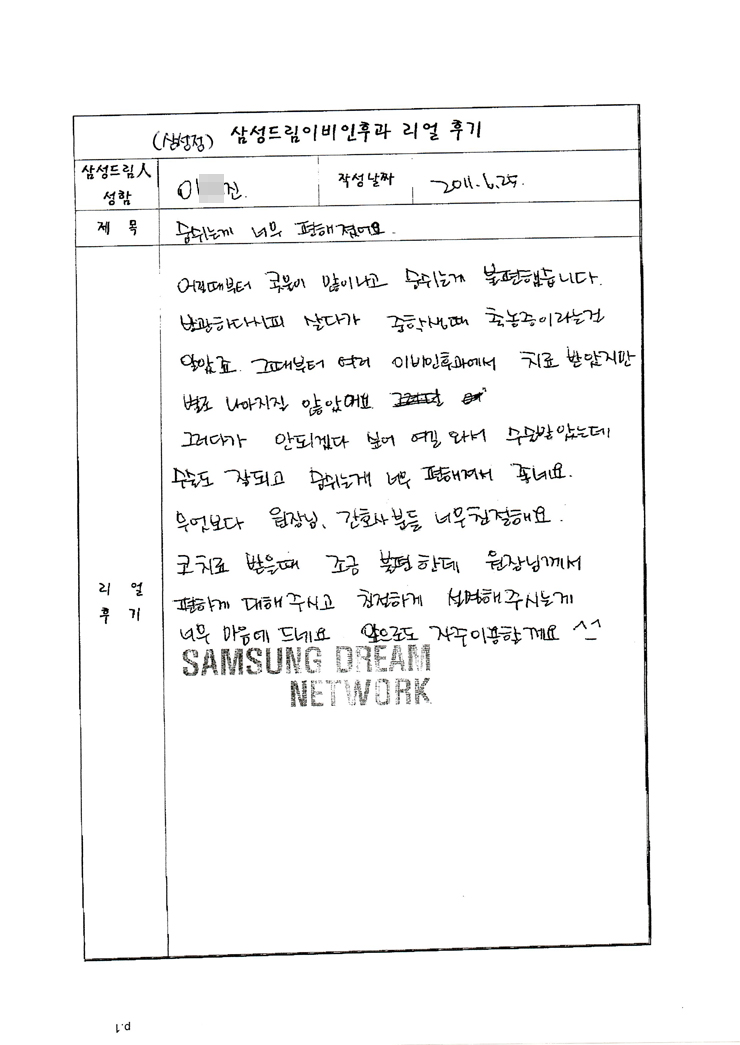 (삼성점) 삼성드림이비인후과 리얼 후기
삼성드림人
성함
이 진.
작성날짜
2011.6.25.
제 목
숨쉬는게 너무 편해졌어요.
어릴때부터 콧물이 많이나고 숨쉬는게 불편했습니다.
방관하다시피 살다가 중학생때 축농증이라는걸
알았죠. 그때부터 여러 이비인후과에서 치료 받았지만
별로 나아지질 않았어요.
그러다가 안되겠다 싶어 여길 와서 수술받았는데
수술도 잘되고 숨쉬는게 너무 편해져서 좋네요.
무엇보다 원장님, 간호사분들 너무친절해요.
코치료 받을때 조금 불편한데 원장님께서
편하게 대해주시고 친절하게 설명해주시는게
너무 마음에 드네요 앞으로도 자주이용할께요 ^^
리 얼
후 기
SAMSUNG DREAM
NETWORK
p.1